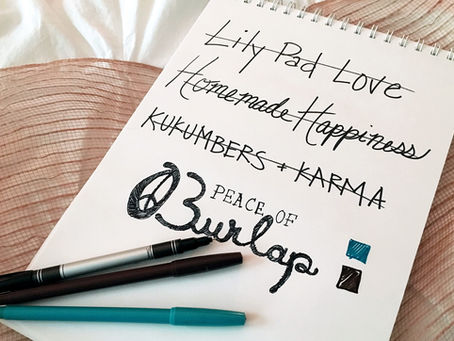 Lily Pad Love
Homemade Happiness
KUKUMBERS + KARMA
PEACE OF
Burlap